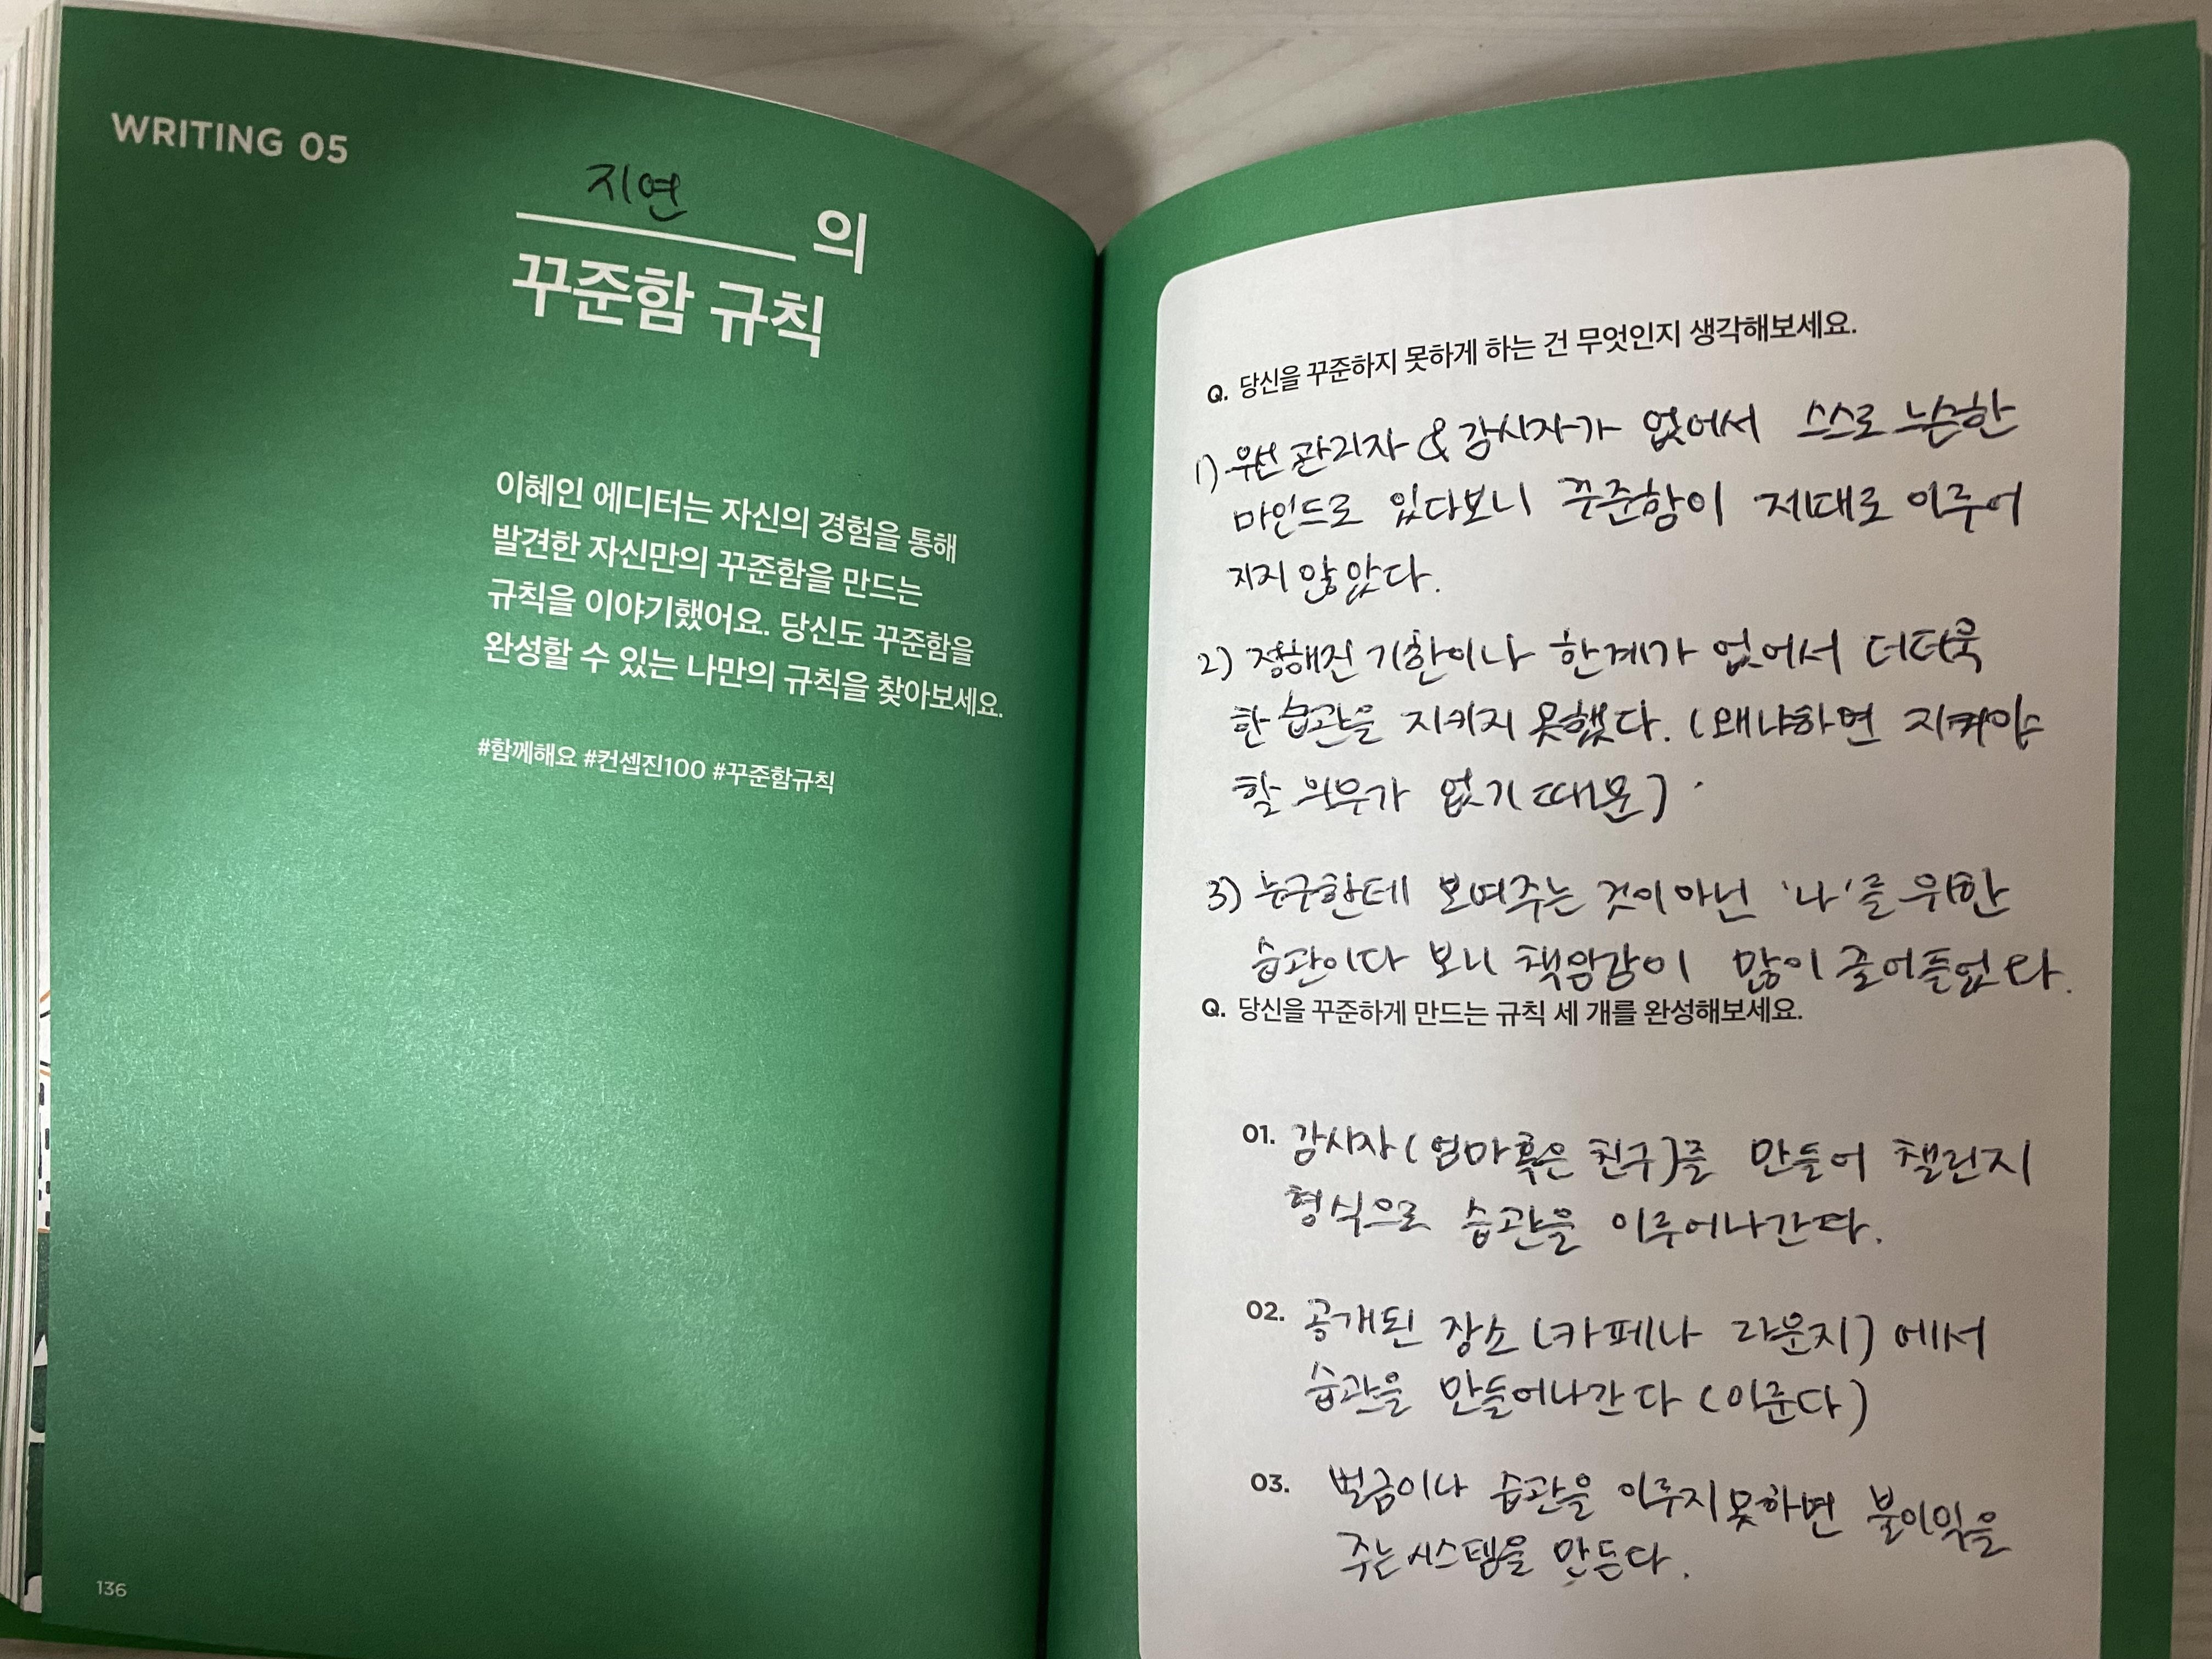 WRITING 05
지연
의
꾸준함 규칙
이혜인 에디터는 자신의 경험을 통해
발견한 자신만의 꾸준함을 만드는
규칙을 이야기했어요. 당신도 꾸준함을
완성할 수 있는 나만의 규칙을 찾아보세요.
#함께해요 #컨셉진100 #꾸준함규칙
136
Q. 당신을 꾸준하지 못하게 하는 건 무엇인지 생각해보세요.
1) 우선 관리자 & 감시자가 없어서 스스로 느슨한
마인드로 있다보니 꾸준함이 제대로 이루어
지지 않았다.
2) 정해진 기한이나 한계가 없어서 더더욱
한 습관을 지키지 못했다. (왜냐하면 지켜야
할 의무가 없기 때문)
3) 누군한테 보여주는 것이 아닌 '나'를 위한
습관이다 보니 책임감이 많이 줄어들었다.
Q. 당신을 꾸준하게 만드는 규칙 세 개를 완성해보세요.
01. 감시자 (엄마 혹은 친구)를 만들어 챌린지
형식으로 습관을 이루어나간다.
02. 공개된 장소 (카페나 라운지) 에서
습관을 만들어나간다 (이룬다)
03. 벌금이나 습관을 이루지 못하면 불이익을
주는 시스템을 만든다.